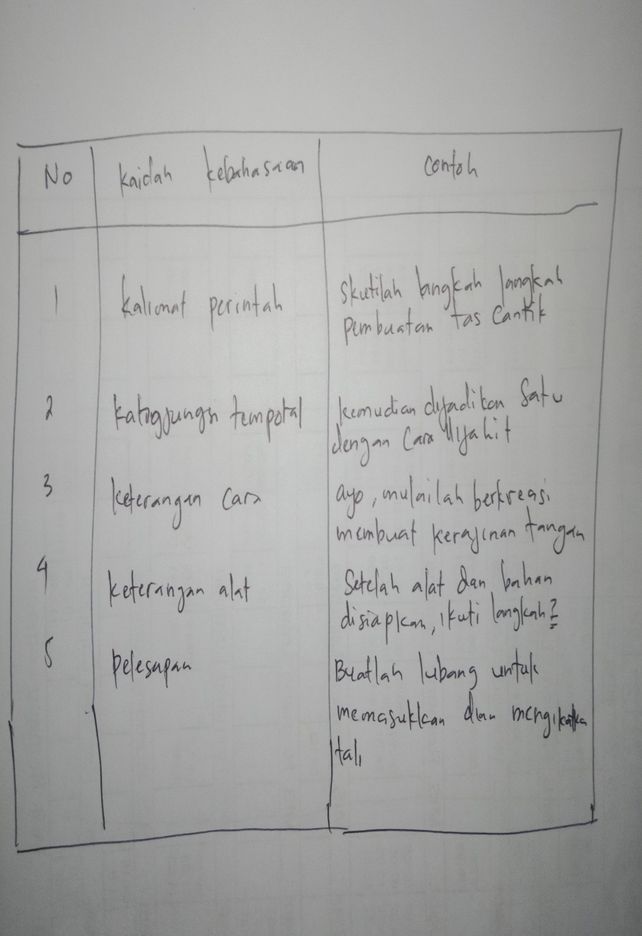 No kaidah kebahasaan contoh
1 kalimat perintah Skutilah langkah langkah
pembuatan tas Cantik
2 temporal kemudian dijadikan Satu
dengan Cara dijahit
3 keterangan Cara ayo, mulailah berkreasi
membuat kerajinan tangan
4 keterangan alat Setelah alat dan bahan
disiapkan, ikuti langkah²
5 pelesapan Buatlah lubang untuk
memasukkan dan
tali